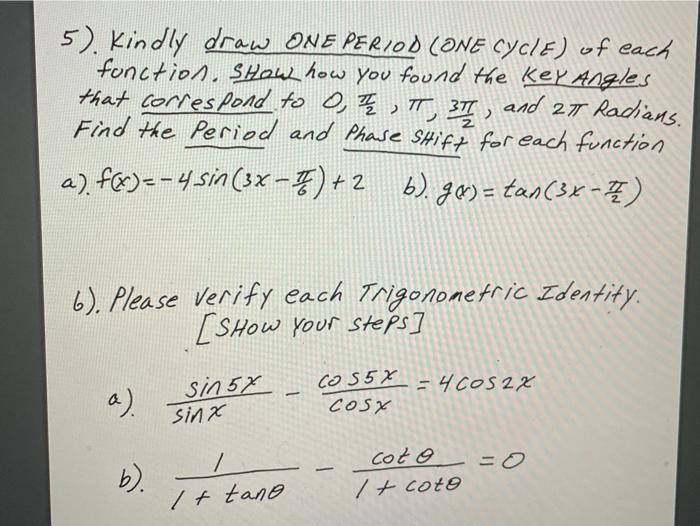 5). Kindly draw ONE PERIOD (ONE CYCLE) of each
function. SHow how you found the Key Angles
that correspond to 0, π/2, π, 3π/2, and 2π Radians.
Find the Period and Phase SHift for each function
a). f(x) = -4 sin(3x - π/6) + 2 b). g(x) = tan(3x - π/2)
6). Please verify each Trigonometric Identity.
[SHow your steps]
a). sin5x/sinx - cos5x/cosx = 4cos2x
b). 1/(1 + tanθ) - cotθ/(1 + cotθ) = 0